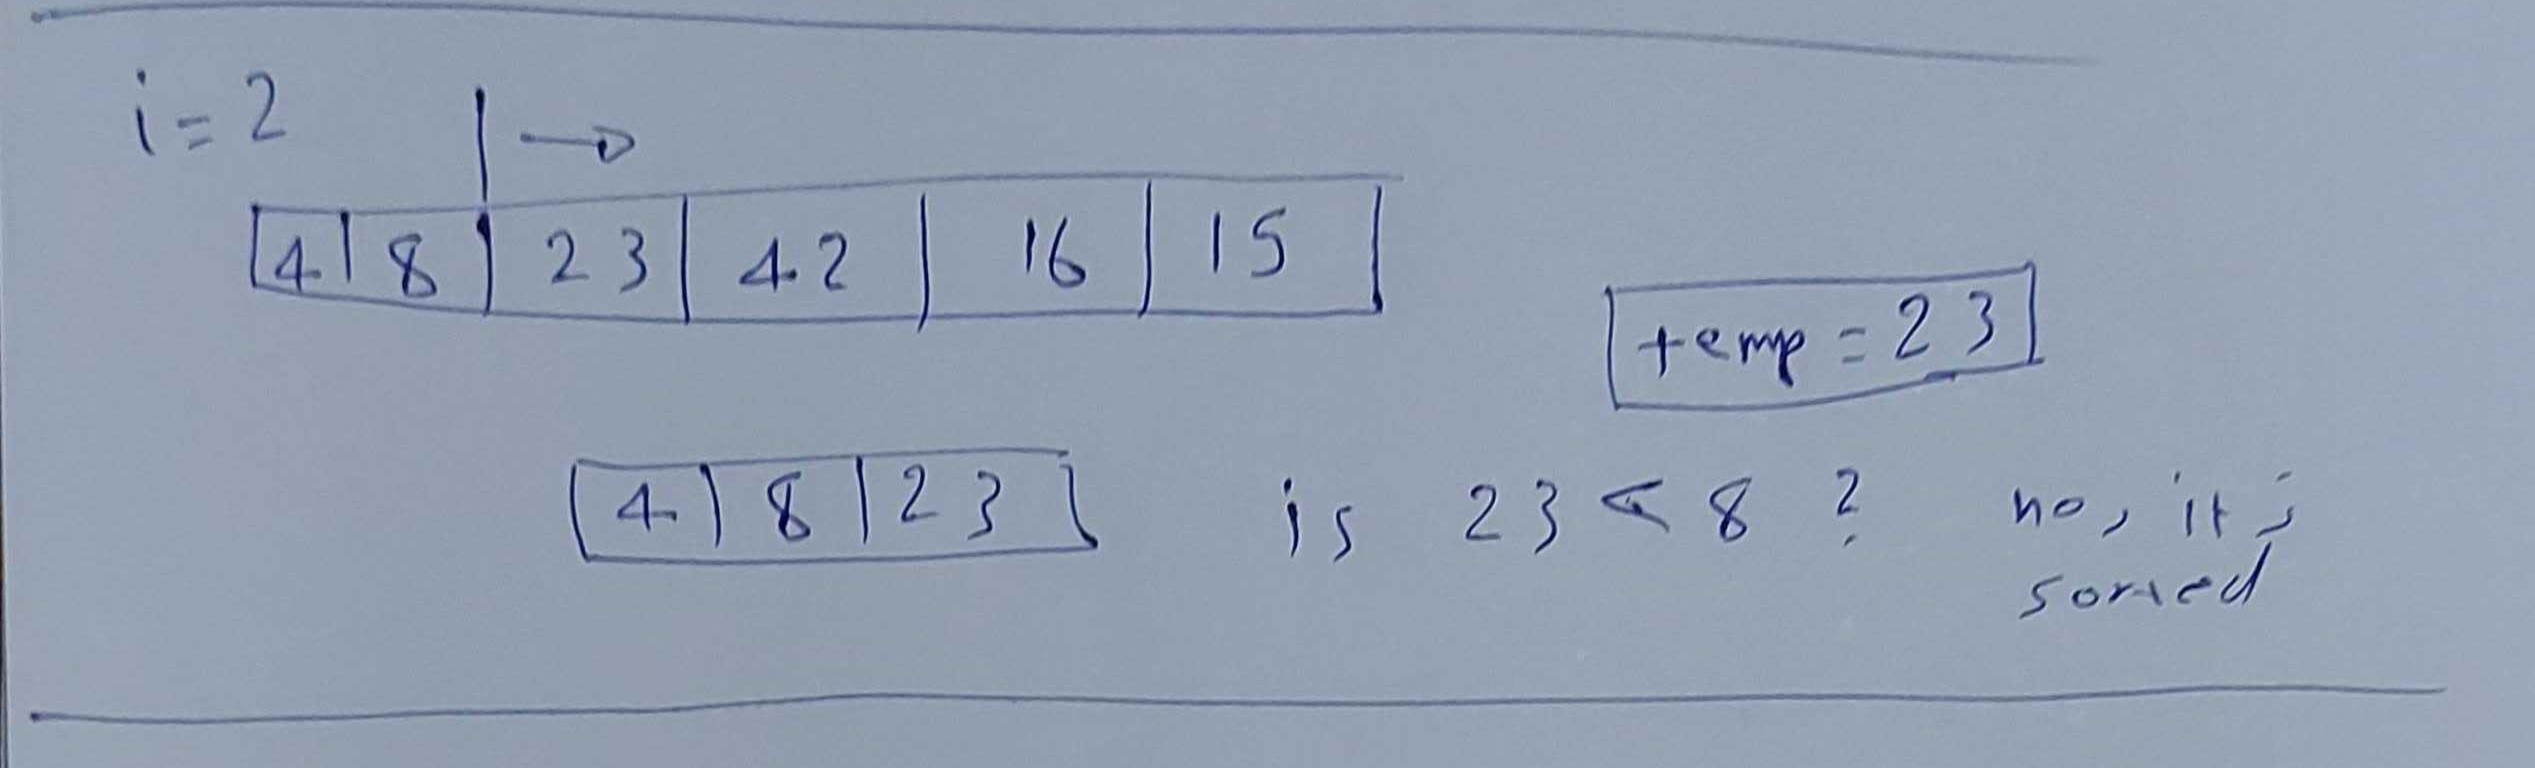 i = 2
4 | 8 | 23 | 42 | 16 | 15
temp = 23
4 | 8 | 23
is 23 < 8 ? no, it's
sorted